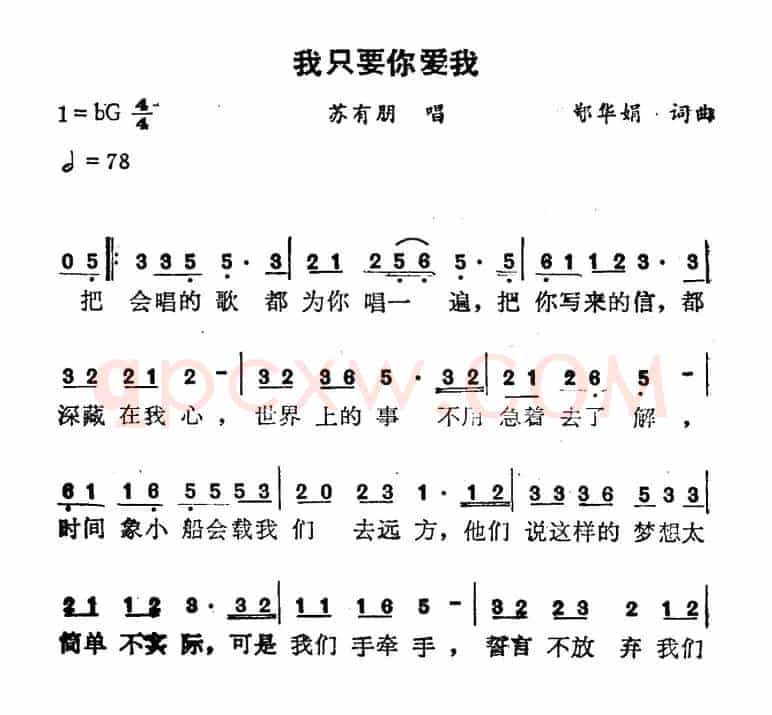 我只要你爱我
1=bG 4/4 苏有朋 唱 鄂华娟·词曲
♩=78
0 5 ‖: 3 3 3 5 5 · 3 | 2 1 2 5 6 5 · 5 | 6 1 1 2 3 · 3 |
把 会唱的 歌 都 为你 唱一 遍，把 你写来的信，都
3 2 2 1 2 - | 3 2 3 6 5 · 3 2 | 2 1 2 6 5 - |
深藏 在我 心， 世界 上的 事 不用 急着 去了 解，
6 1 1 6 5 5 5 3 | 2 0 2 3 1 · 1 2 | 3 3 3 6 5 3 3 |
时间 象小 船会载我 们 去远 方，他们 说这样的 梦想太
2 1 1 2 3 · 3 2 | 1 1 1 6 5 - | 3 2 2 3 2 1 2 |
简单 不实 际，可是 我们 手牵 手， 誓言 不放 弃 我们
qpcxw.COM